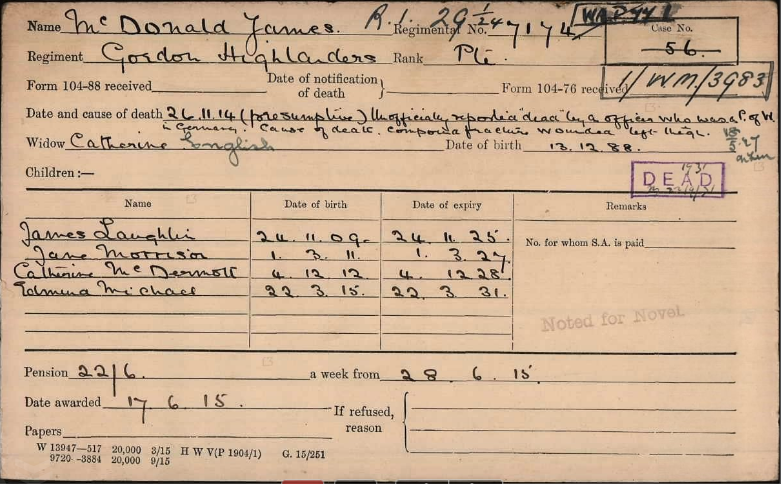 Name Mc Donald James. R.1. 29 1/24 Regimental No. 7174 Case No.
Regiment Gordon Highlanders Rank Pte. 56.
Form 104-88 received Date of notification of death } Form 104-76 received 1/W.M./3983
Date and cause of death 26.11.14 (presumptive) Unofficially reported "dead" by a officer who was a P. of W.
in Germany. Cause of death. Compound fracture wounded left thigh.
Widow Catherine English Date of birth 13.12.88.
Children:— DEAD
Name Date of birth Date of expiry Remarks
James Laughlin 24. 11. 09. 24. 11. 25. No. for whom S.A. is paid
Jane Morrison 1. 3. 11. 1. 3. 27.
Catherine McDermott 4. 12 12 4. 12 28.
Edmund Michael 22. 3. 15. 22. 3. 31.
Noted for Novel
Pension 22/6. a week from 28. 6. 15.
Date awarded 17. 6. 15. If refused, reason
Papers
W 13947—517 20,000 3/15 H W V(P 1904/1) G. 15/251
9720—3884 20,000 9/15